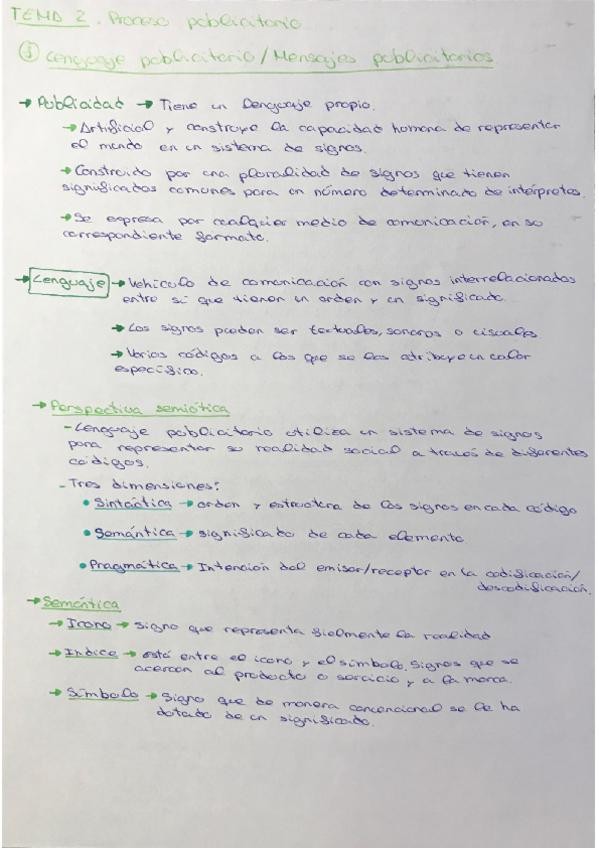 TEMA 2. Proceso publicitario
① Lenguaje publicitario / Mensajes publicitarios
→ Publicidad → Tiene un lenguaje propio.
→ Artificial y construye la capacidad humana de representar
el mundo en un sistema de signos.
→ Construido por una pluralidad de signos que tienen
significados comunes para un número determinado de intérpretes.
→ Se expresa por cualquier medio de comunicación, en su
correspondiente formato.
→ Lenguaje → Vehículo de comunicación con signos interrelacionados
entre sí que tienen un orden y un significado.
→ Los signos pueden ser textuales, sonoros o visuales
→ Varios códigos a los que se les atribuye un valor
específico.
→ Perspectiva semiótica
- Lenguaje publicitario utiliza un sistema de signos
para representar su realidad social a través de diferentes
códigos.
- Tres dimensiones:
• Sintáctica → orden y estructura de los signos en cada código
• Semántica → significado de cada elemento
• Pragmática → Intención del emisor/receptor en la codificación/
descodificación.
→ Semántica
→ Icono → signo que representa fielmente la realidad
→ Indice → está entre el icono y el símbolo. Signos que se
acercan al producto o servicio y a la marca.
→ Símbolo → Signo que de manera convencional se le ha
dotado de un significado.